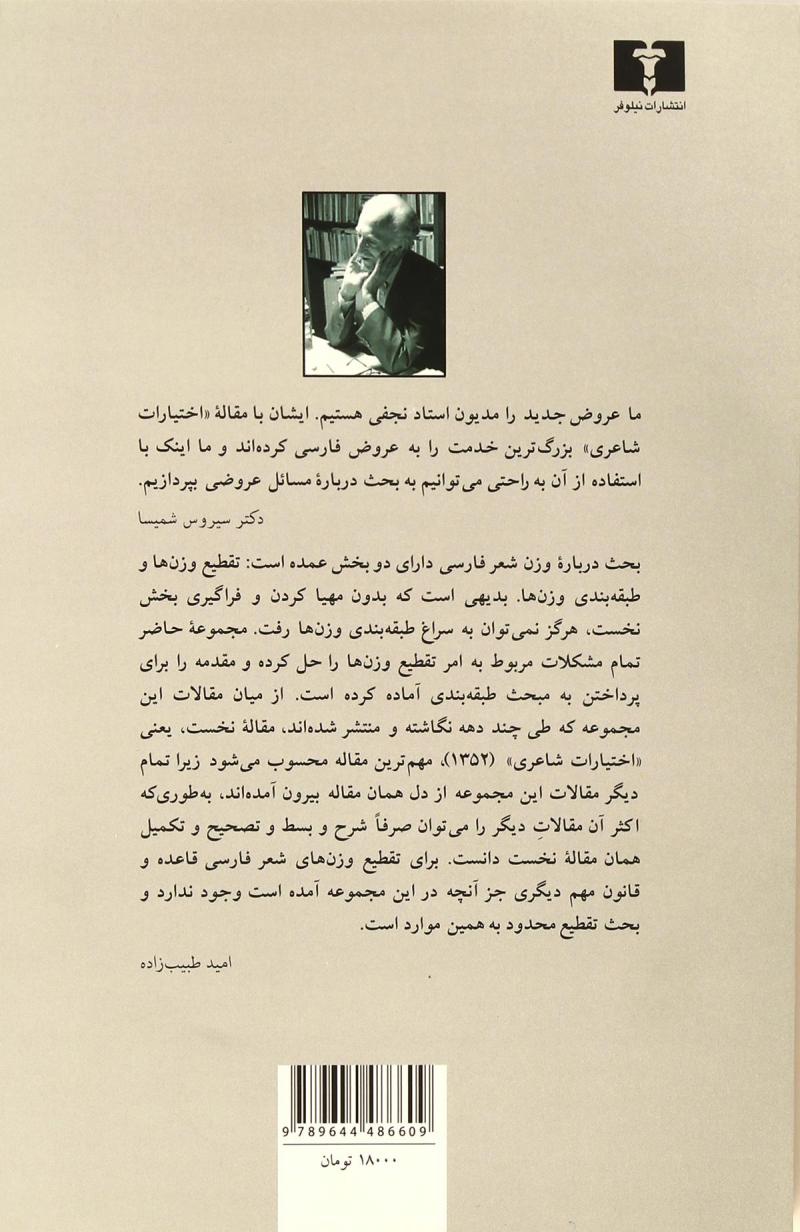 انتشارات نیلوفر
ما عروض جدید را مدیون استاد نجفی هستیم. ایشان با مقالهٔ «اختیارات
شاعری» بزرگ‌ترین خدمت را به عروض فارسی کرده‌اند و ما اینک با
استفاده از آن به راحتی می‌توانیم به بحث دربارهٔ مسائل عروضی بپردازیم.
دکتر سیروس شمیسا
بحث دربارهٔ وزن شعر فارسی دارای دو بخش عمده است: تقطیع وزن‌ها و
طبقه‌بندی وزن‌ها. بدیهی است که بدون مهیا کردن و فراگیری بخش
نخست، هرگز نمی‌توان به سراغ طبقه‌بندی وزن‌ها رفت. مجموعهٔ حاضر
تمام مشکلات مربوط به امر تقطیع وزن‌ها را حل کرده و مقدمه را برای
پرداختن به مبحث طبقه‌بندی آماده کرده است. از میان مقالات این
مجموعه که طی چند دهه نگاشته و منتشر شده‌اند، مقالهٔ نخست، یعنی
«اختیارات شاعری» (۱۳۵۲)، مهم‌ترین مقاله محسوب می‌شود زیرا تمام
دیگر مقالات این مجموعه از دل همان مقاله بیرون آمده‌اند، به‌طوری‌که
اکثر آن مقالاتِ دیگر را می‌توان صرفاً شرح و بسط و تصحیح و تکمیل
همان مقالهٔ نخست دانست. برای تقطیع وزن‌های شعر فارسی قاعده و
قانون مهم دیگری جز آنچه در این مجموعه آمده است وجود ندارد و
بحث تقطیع محدود به همین موارد است.
امید طبیب‌زاده
9 789644 486609
۱۸۰۰۰ تومان